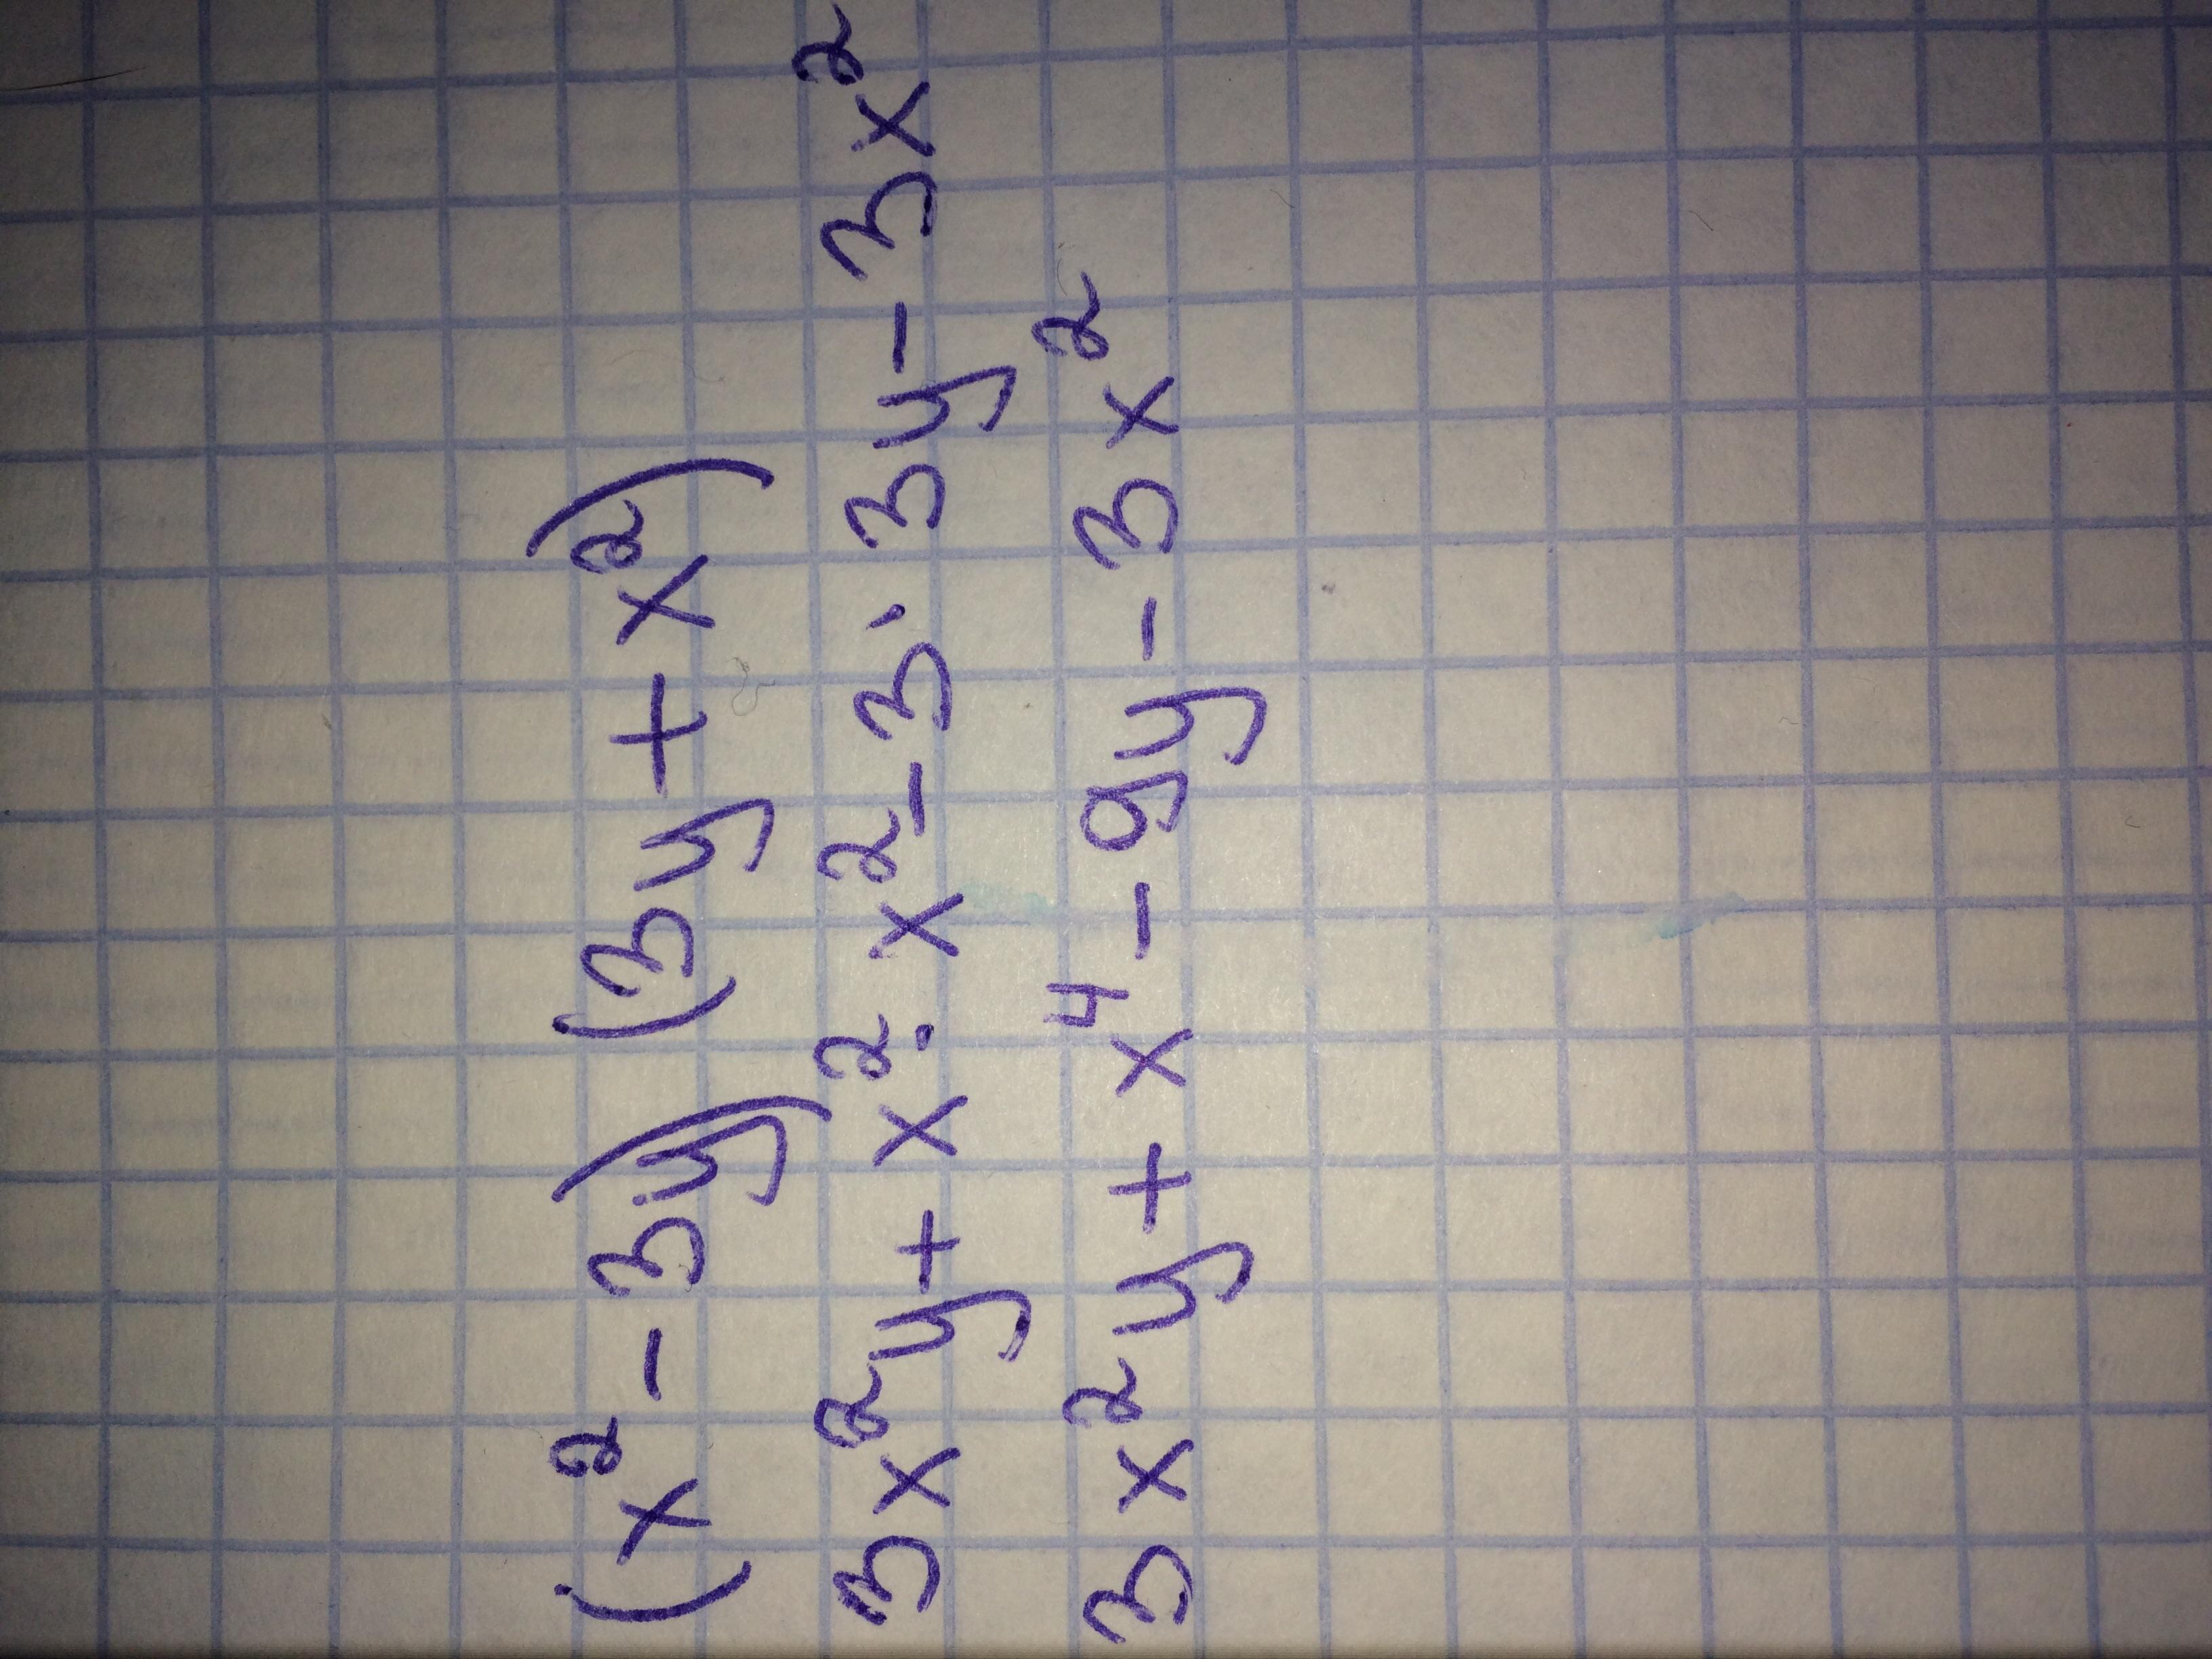 (x² - 3y) (3y + x²)
3x²y + x² · x² - 3 · 3y - 3x²
3x²y + x⁴ - 9y - 3x²